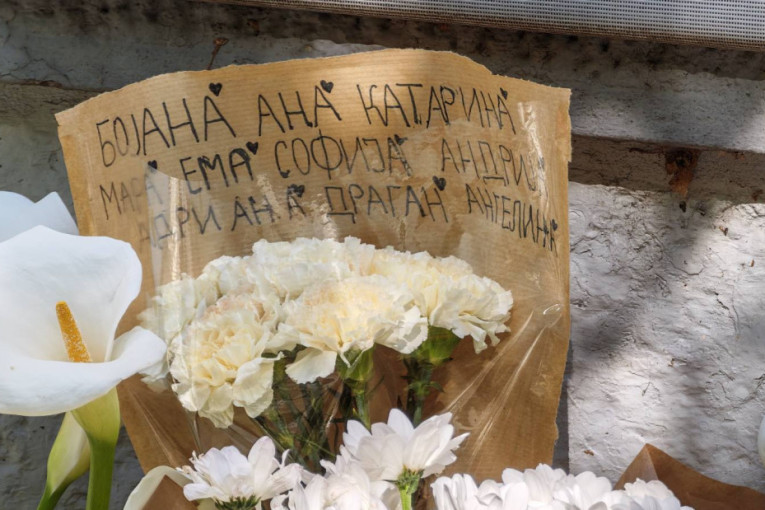 БОЈАНА АНА КАТАРИНА
МАРА ЕМА СОФИЈА АНДРИЈ
АДРИАНА ДРАГАН АНГЕЛИНА